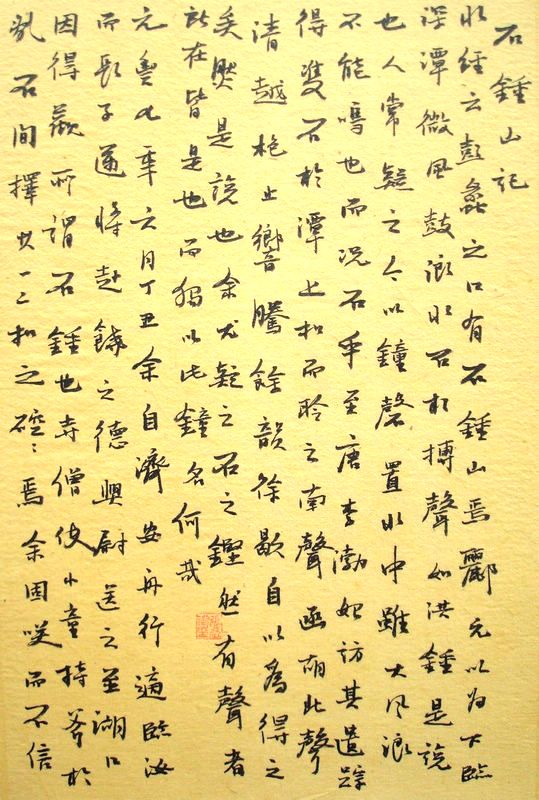 石鍾山記
水經云彭蠡之口有石鍾山焉酈元以為下臨
深潭微風鼓浪水石相搏聲如洪鍾是說
也人常疑之今以鐘磬置水中雖大風浪
不能鳴也而況石乎至唐李渤始訪其遺踪
得雙石於潭上扣而聆之南聲函胡北聲
清越枹止響騰餘韻徐歇自以為得之
矣然是說也余尤疑之石之鏗然有聲者
所在皆是也而獨以此鐘名何哉
元豐七年六月丁丑余自濟安舟行適臨汝
而長子邁將赴饒之德興尉送之至湖口
因得觀所謂石鍾也寺僧使小童持斧於
亂石間擇其一二扣之硿硿焉余固笑而不信